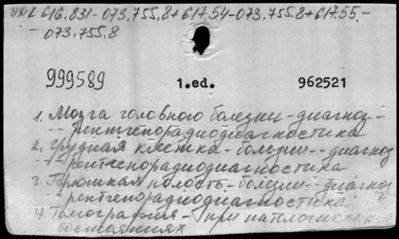 УДК 616.831-073.755.8+617.54-073.755.8+617.55.-
-073.755.8
999589 1.ed. 962521
1. Мозга головного болезни - диагноз -
-- рентгенорадиодиагностика
2. Грудная клетка - болезни -- диагноз
-- рентгенорадиодиагностика
3. Брюшная полость - болезни -- диагноз
-- рентгенорадиодиагностика
4. Томография -- при патологическ
состояниях